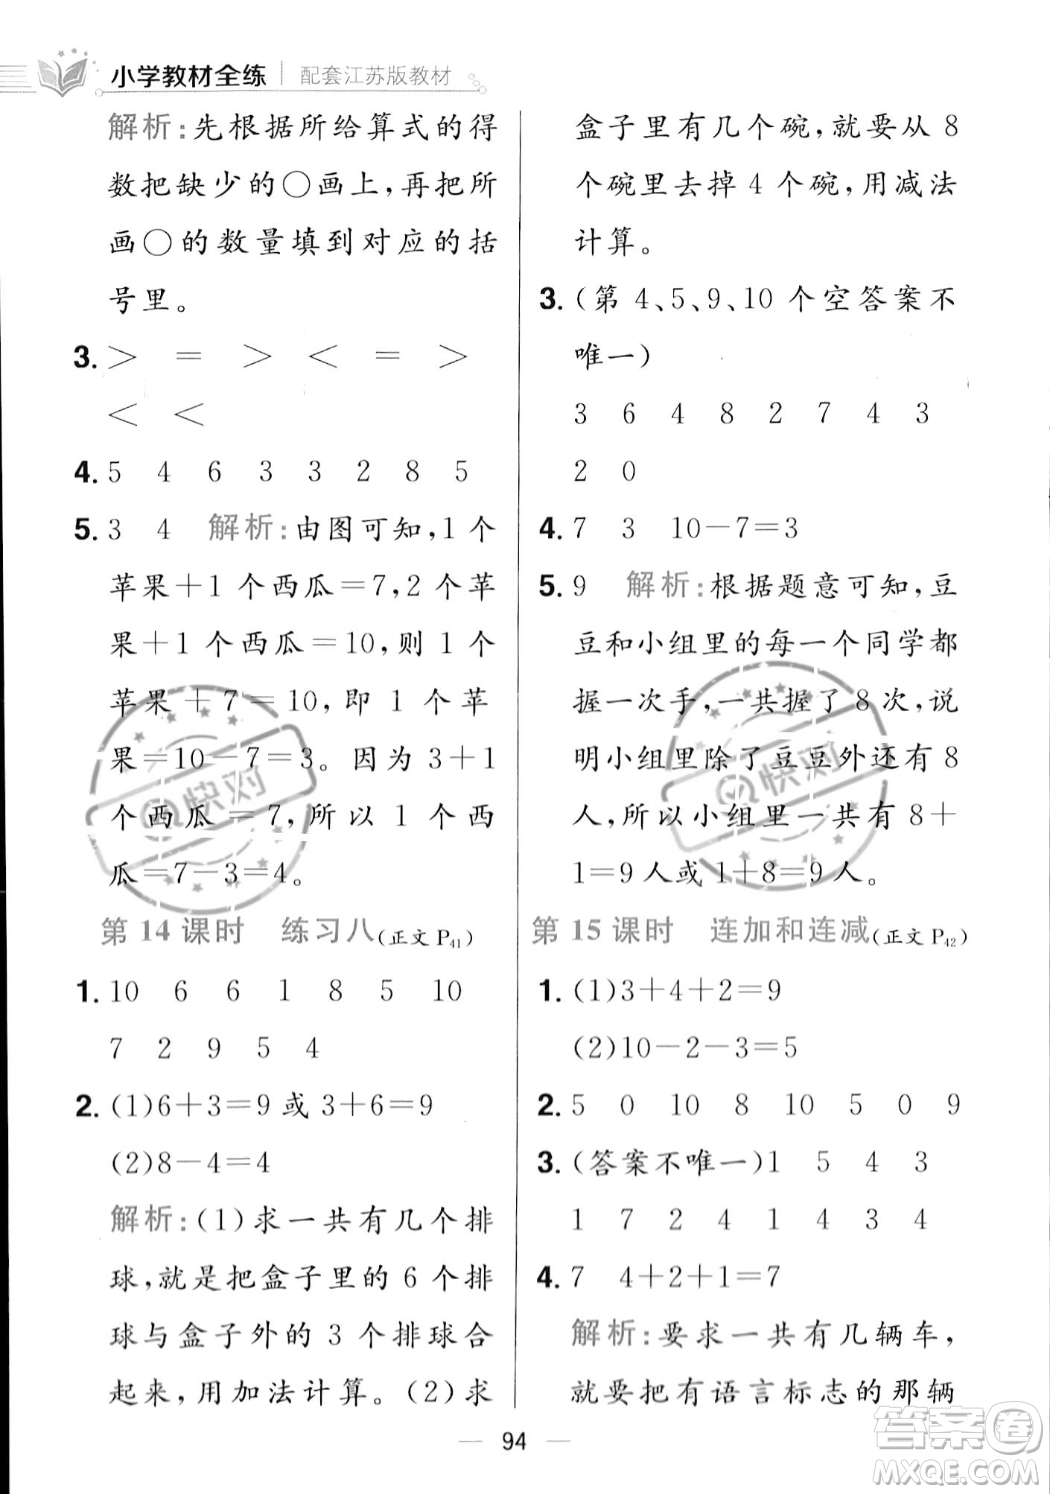 小学教材全练 配套江苏版教材
解析:先根据所给算式的得
数把缺少的○画上,再把所
画○的数量填到对应的括
号里。
3. > = > < = >
< <
4. 5 4 6 3 3 2 8 5
5. 3 4 解析:由图可知,1个
苹果+1个西瓜=7,2个苹
果+1个西瓜=10,则1个
苹果+7=10,即1个苹
果=10-7=3。因为3+1
个西瓜=7,所以1个西
瓜=7-3=4。
第14课时 练习八(正文P41)
1. 10 6 6 1 8 5 10
7 2 9 5 4
2. (1)6+3=9或3+6=9
(2)8-4=4
解析:(1)求一共有几个排
球,就是把盒子里的6个排
球与盒子外的3个排球合
起来,用加法计算。(2)求
盒子里有几个碗,就要从8
个碗里去掉4个碗,用减法
计算。
3. (第4、5、9、10个空答案不
唯一)
3 6 4 8 2 7 4 3
2 0
4. 7 3 10-7=3
5. 9 解析:根据题意可知,豆
豆和小组里的每一个同学都
握一次手,一共握了8次,说
明小组里除了豆豆外还有8
人,所以小组里一共有8+
1=9人或1+8=9人。
第15课时 连加和连减(正文P42)
1. (1)3+4+2=9
(2)10-2-3=5
2. 5 0 10 8 10 5 0 9
3. (答案不唯一)1 5 4 3
1 7 2 4 1 4 3 4
4. 7 4+2+1=7
解析:要求一共有几辆车,
就要把有语言标志的那辆
94
快对
快对
答案卷
MXQE.COM